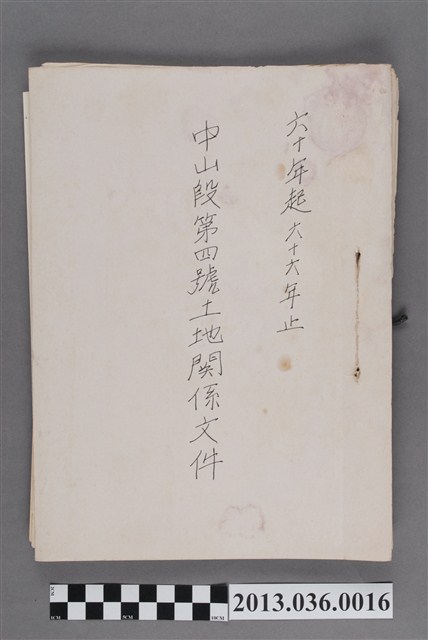 六十年起六十六年止
中山段第四號土地関係文件
2013.036.0016
1CM
5CM
10CM